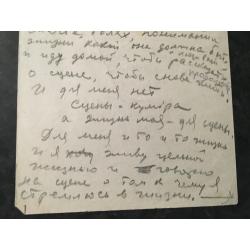 понимании
жизни какой она должна быть
и иду домой, чтобы
о сцене, чтобы снова
И для меня нет
Сцены - кумира
а жизнь моя - для сцены.
Для меня и то и то жизнь
и я живу цельной
жизнью и говорю
на сцене о том к чему я
стремлюсь в жизни.